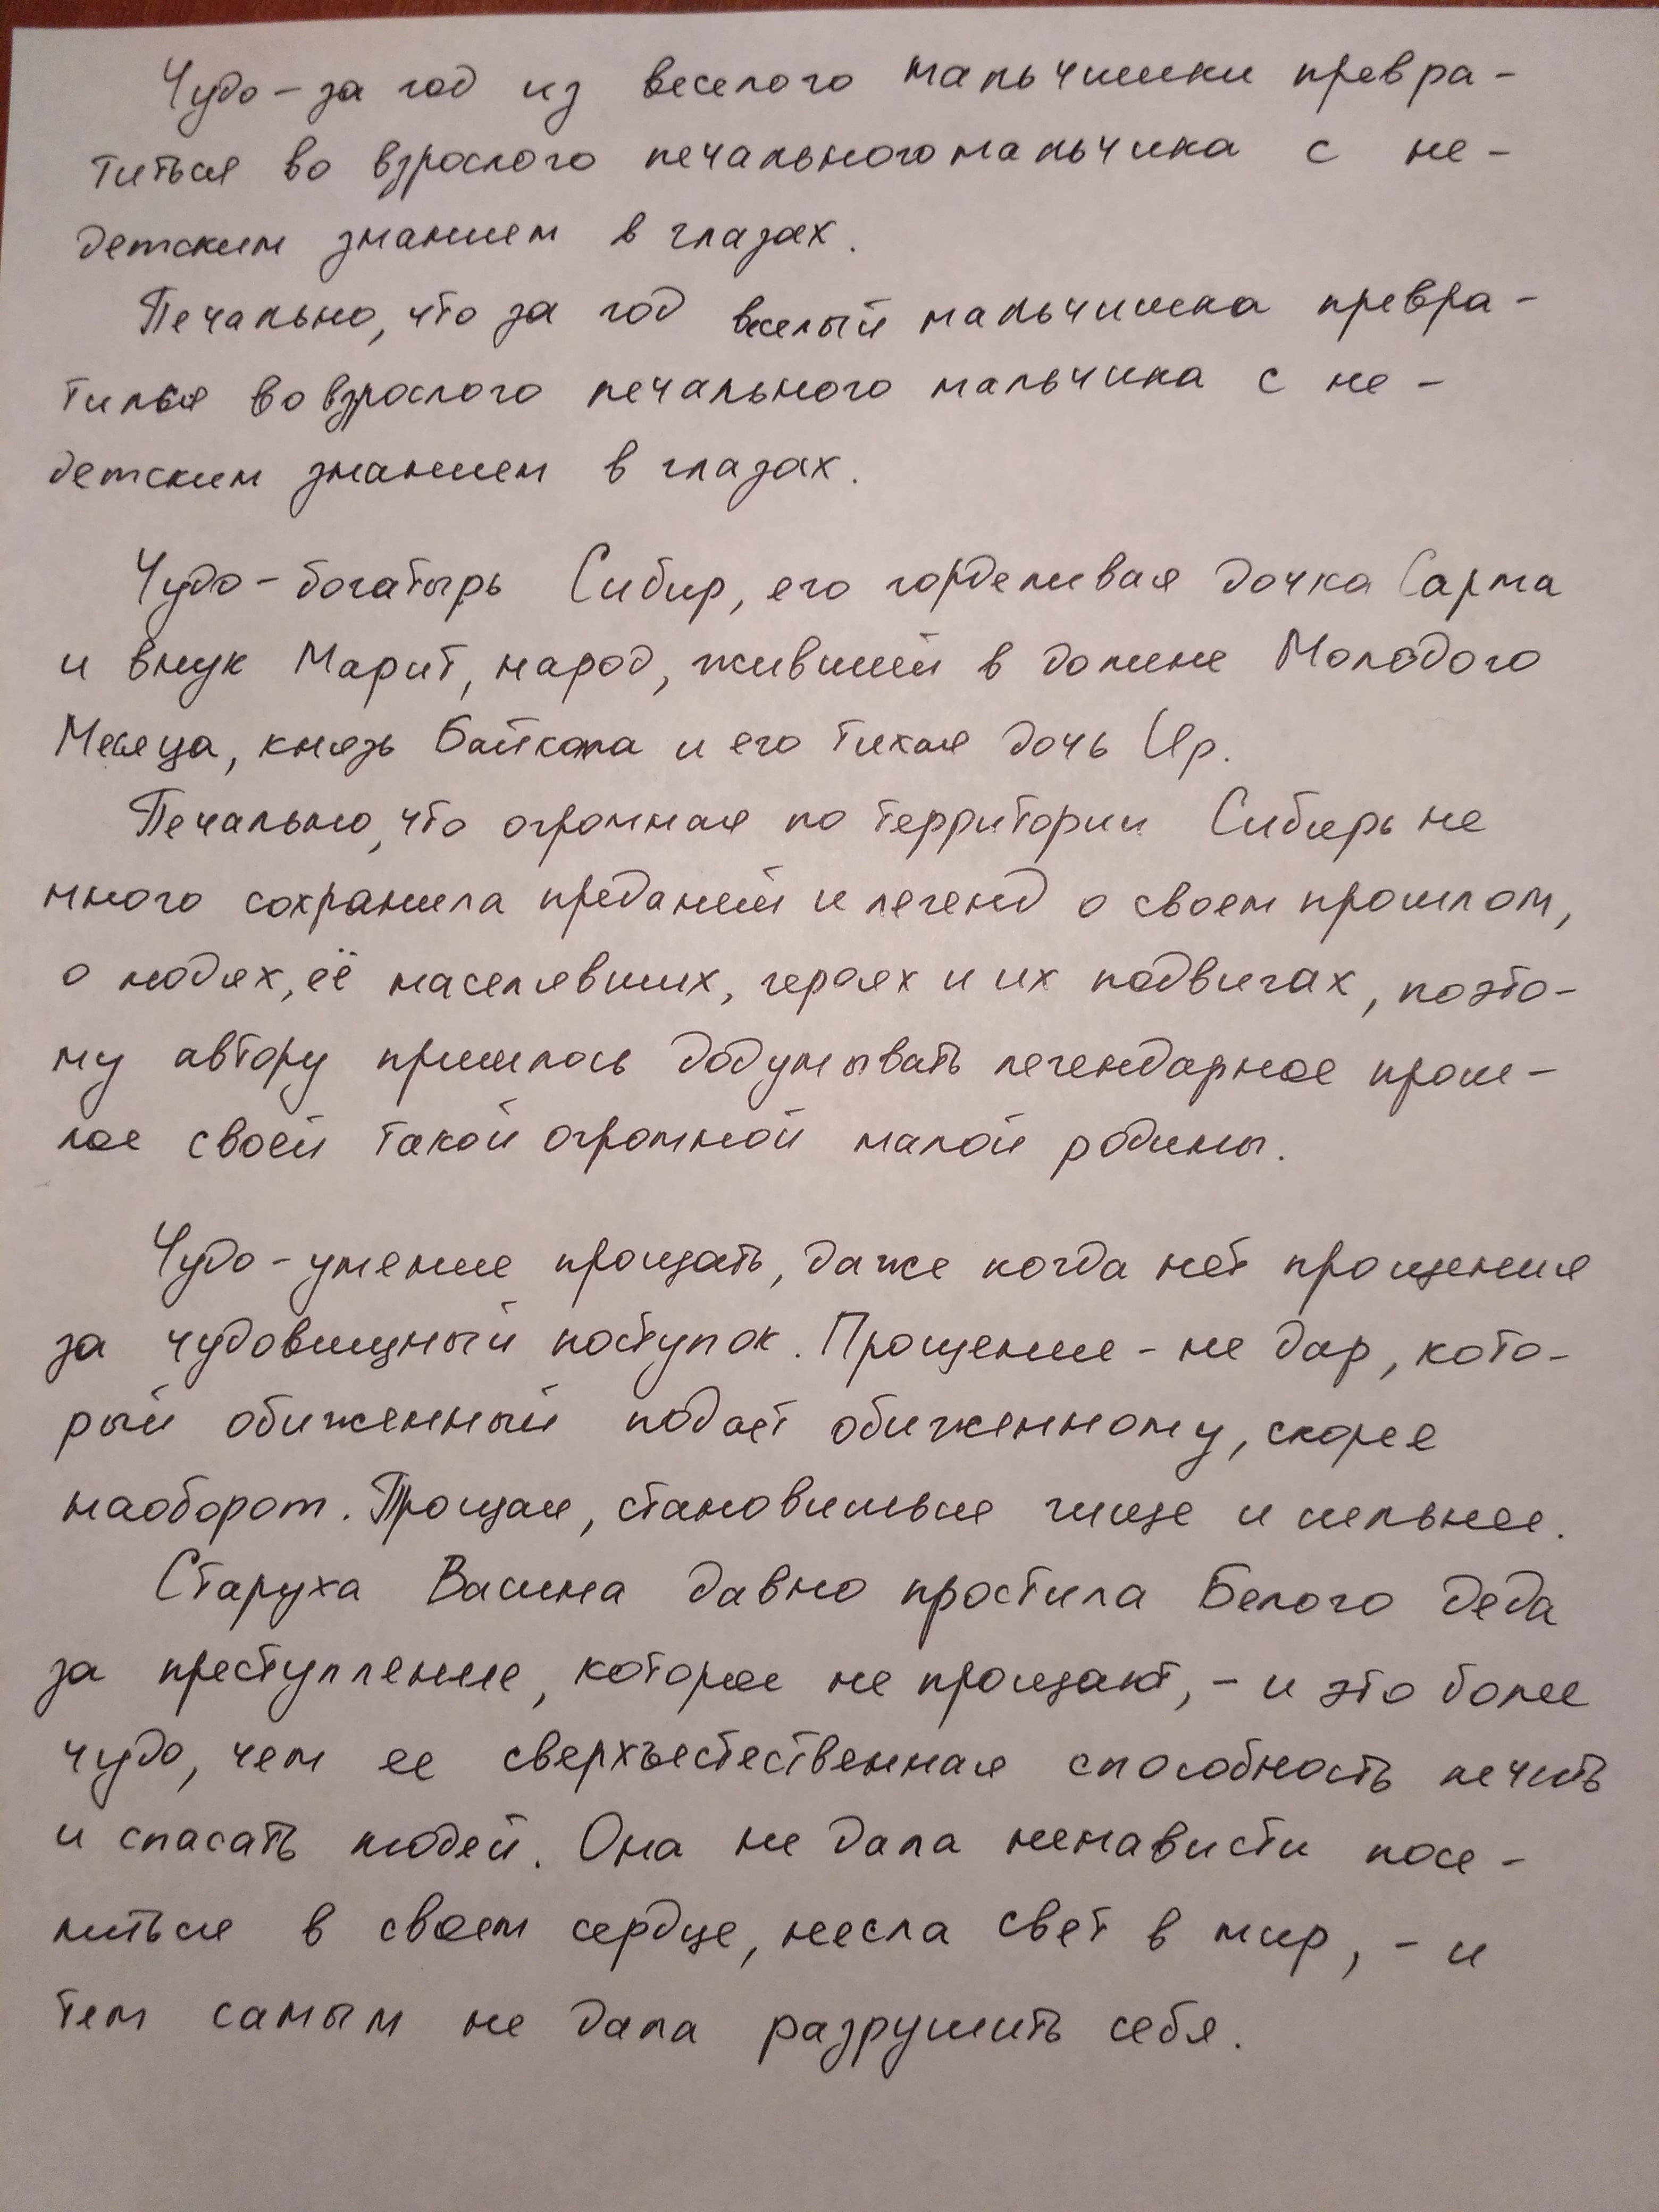 Чудо – за год из веселого мальчишки превра-
титься во взрослого печального мальчика с не-
детским знанием в глазах.
Печально, что за год веселый мальчишка превра-
тился во взрослого печального мальчика с не-
детским знанием в глазах.
Чудо-богатырь Сибир, его горделивая дочка Сарма
и внук Марит, народ, живший в долине Молодого
Месяца, князь Байкала и его тихая дочь Ир.
Печально, что огромная по территории Сибирь не
много сохранила преданий и легенд о своем прошлом,
о людях, её населявших, героях и их подвигах, поэто-
му автору пришлось додумывать легендарное прош-
лое своей такой огромной малой родины.
Чудо – умение прощать, даже когда нет прощения
за чудовищный поступок. Прощение – не дар, кото-
рый обиженный подает обиженному, скорее
наоборот. Прощая, становишься чище и сильнее.
Старуха Васина давно простила Белого деда
за преступление, которое не прощают, – и это более
чудо, чем ее сверхъестественная способность лечить
и спасать людей. Она не дала ненависти посе-
литься в своем сердце, несла свет в мир, – и
тем самым не дала разрушить себя.